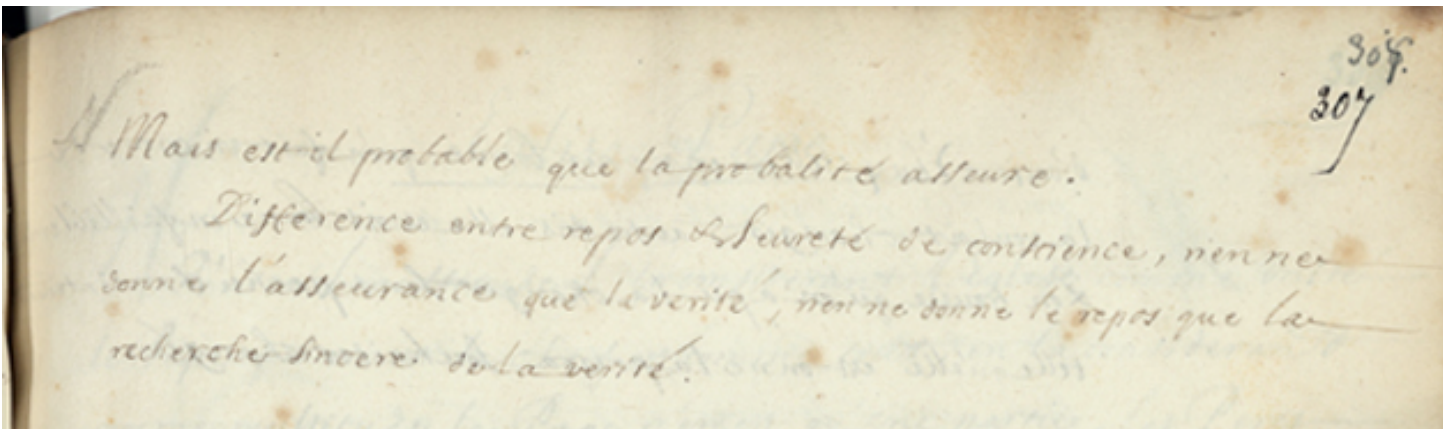 307
Mais est-il probable que la probalité asseure.
Difference entre repos & seureté de conscience, rien ne
donne l'asseurance que la verité, rien ne donne le repos que la
recherche sincere de la verité.